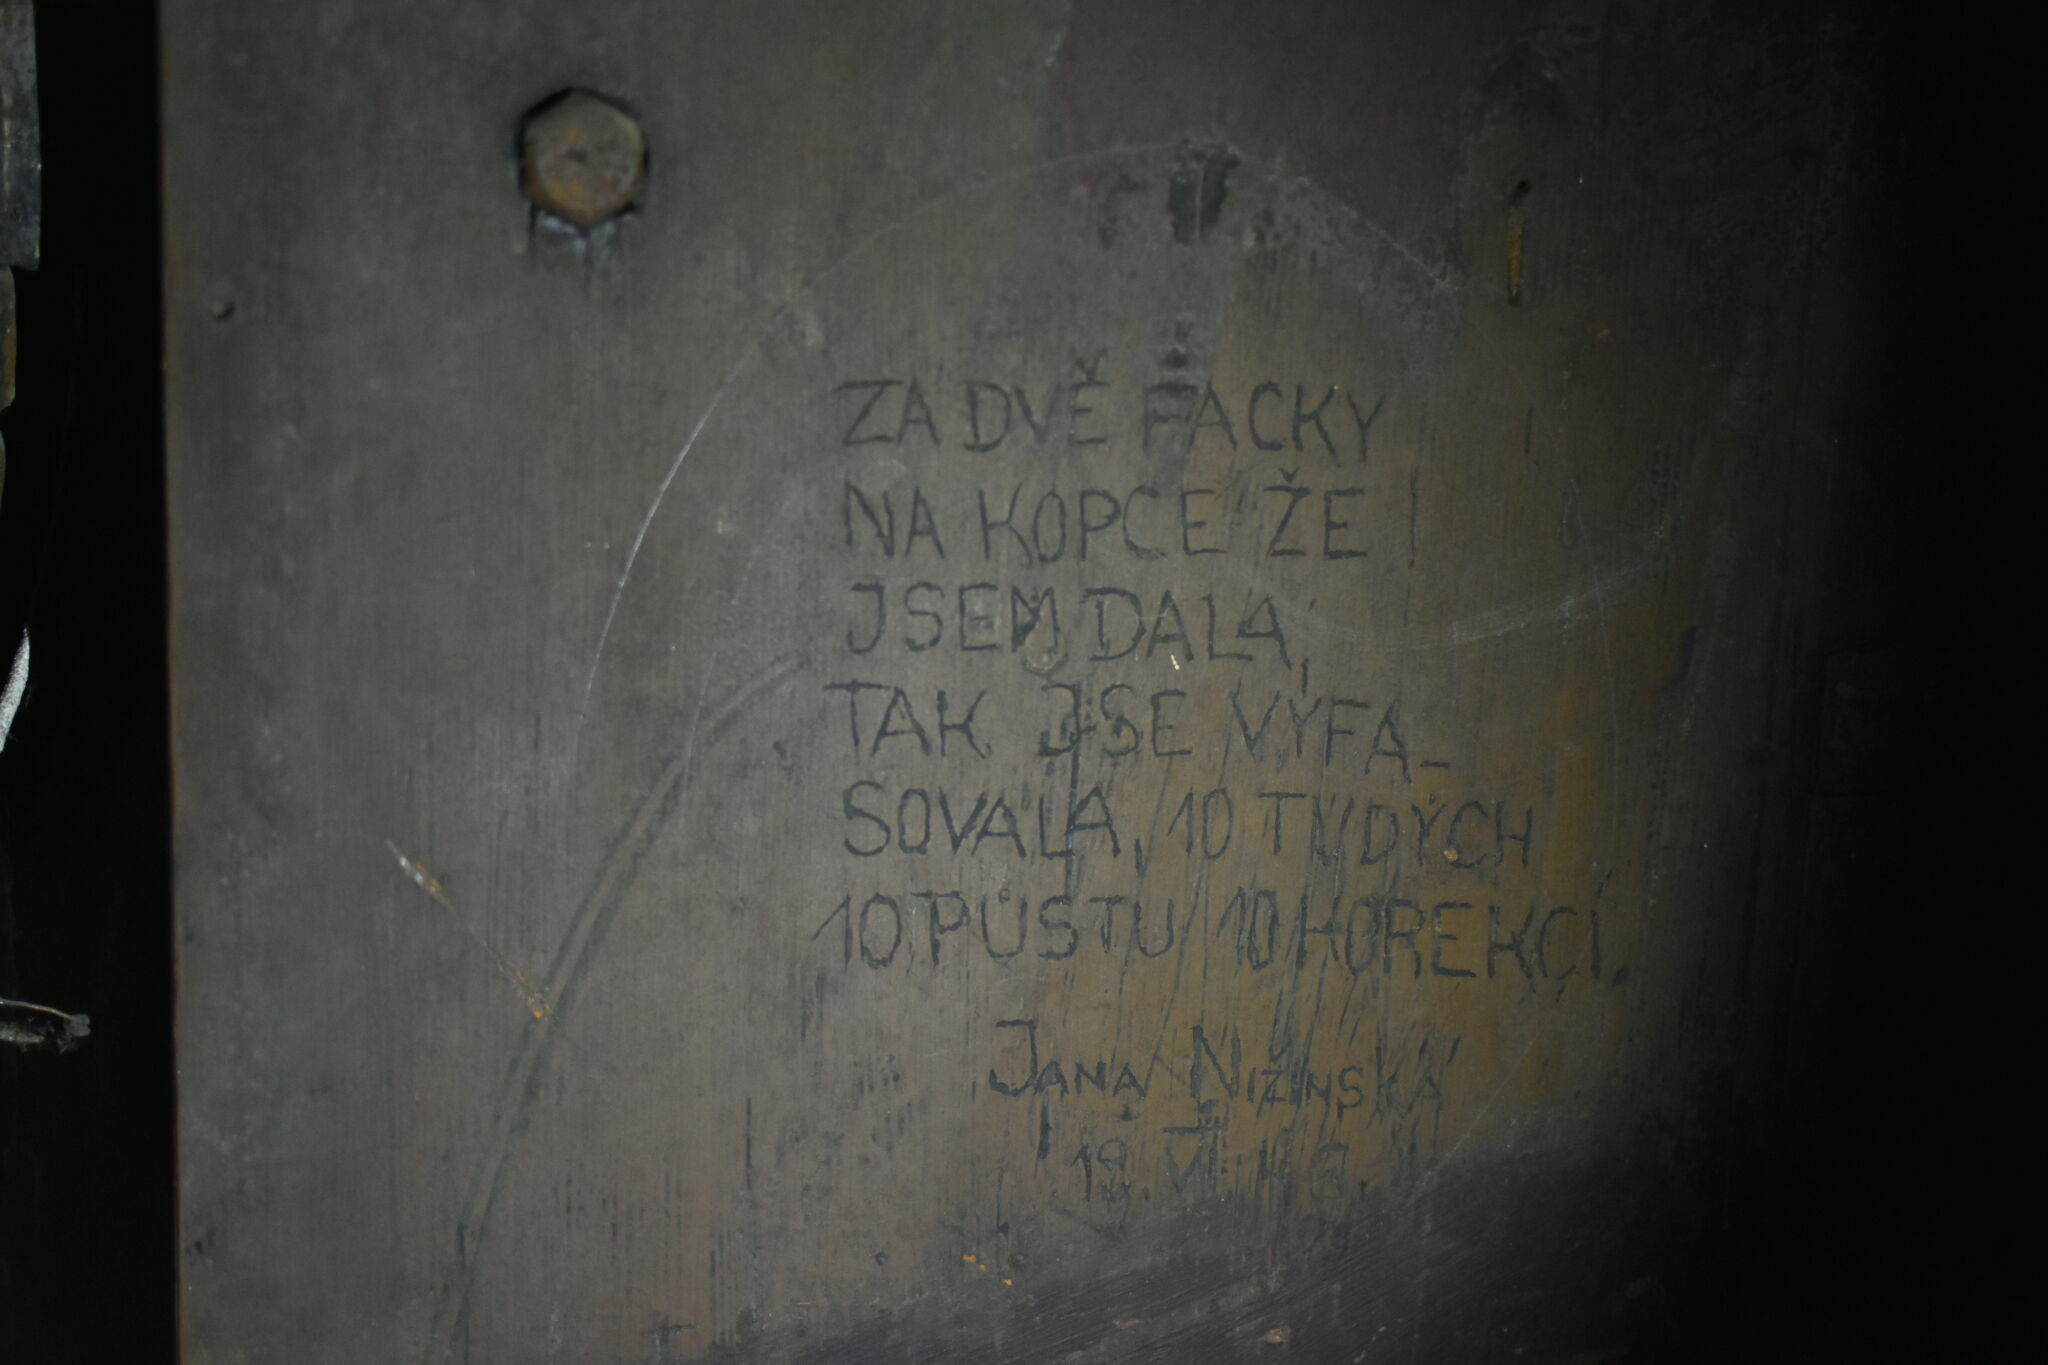 ZA DVĚ FACKY
NA KOPCE ŽE
JSEM DALA,
TAK JSE VÝFA-
SOVALA, 10 TVDÝCH
10 PŮSTU 10 KOREKCÍ.
JANA NIŽINSKÁ